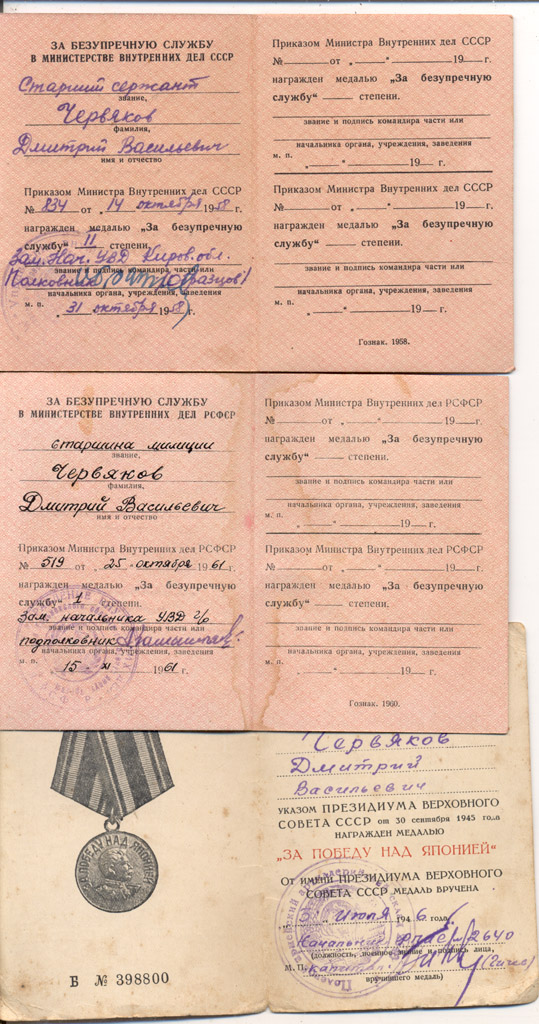 ЗА БЕЗУПРЕЧНУЮ СЛУЖБУ
В МИНИСТЕРСТВЕ ВНУТРЕННИХ ДЕЛ СССР
Старший сержант
звание,
Червяков
фамилия,
Дмитрий Васильевич
имя и отчество
Приказом Министра Внутренних дел СССР
№ 834 от „14 октября 1958 г.
награжден медалью „За безупречную
службу“ II степени.
Зам. Нач. УВД Киров. обл.
звание и подпись командира части или
Полковник
начальника органа, учреждения, заведения
м. п.
31 октября 1958 г.
Приказом Министра Внутренних дел СССР
№ от „ “ 19 г.
награжден медалью „За безупречную
службу“ степени.
звание и подпись командира части или
начальника органа, учреждения, заведения
м. п.
„ “ 19 г.
Приказом Министра Внутренних дел СССР
№ от „ “ 19 г.
награжден медалью „За безупречную
службу“ степени.
звание и подпись командира части или
начальника органа, учреждения, заведения
м. п.
„ “ 19 г.
Гознак. 1958.
ЗА БЕЗУПРЕЧНУЮ СЛУЖБУ
В МИНИСТЕРСТВЕ ВНУТРЕННИХ ДЕЛ РСФСР
старшина милиции
звание,
Червяков
фамилия,
Дмитрий Васильевич
имя и отчество
Приказом Министра Внутренних дел РСФСР
№ 519 от „25 октября 1961 г.
награжден медалью „За безупречную
службу“ 1 степени.
Зам. начальника УВД
звание и подпись командира части или
подполковник
начальника органа, учреждения, заведения
м. п.
15 XI 1961 г.
Приказом Министра Внутренних дел РСФСР
№ от „ “ 19 г.
награжден медалью „За безупречную
службу“ степени.
звание и подпись командира части или
начальника органа, учреждения, заведения
м. п.
„ “ 19 г.
Приказом Министра Внутренних дел РСФСР
№ от „ “ 19 г.
награжден медалью „За безупречную
службу“ степени.
звание и подпись командира части или
начальника органа, учреждения, заведения
м. п.
„ “ 19 г.
Гознак. 1960.
ЗА ПОБЕДУ НАД ЯПОНИЕЙ
Б № 398800
Червяков
Дмитрий
Васильевич
УКАЗОМ ПРЕЗИДИУМА ВЕРХОВНОГО
СОВЕТА СССР от 30 сентября 1945 года
НАГРАЖДЕН МЕДАЛЬЮ
„ЗА ПОБЕДУ НАД ЯПОНИЕЙ“
От имени ПРЕЗИДИУМА ВЕРХОВНОГО
СОВЕТА СССР МЕДАЛЬ ВРУЧЕНА
июля 1946 года
Начальник 2640
(должность, военное звание и подпись лица,
М. П. капитан
вручившего медаль)